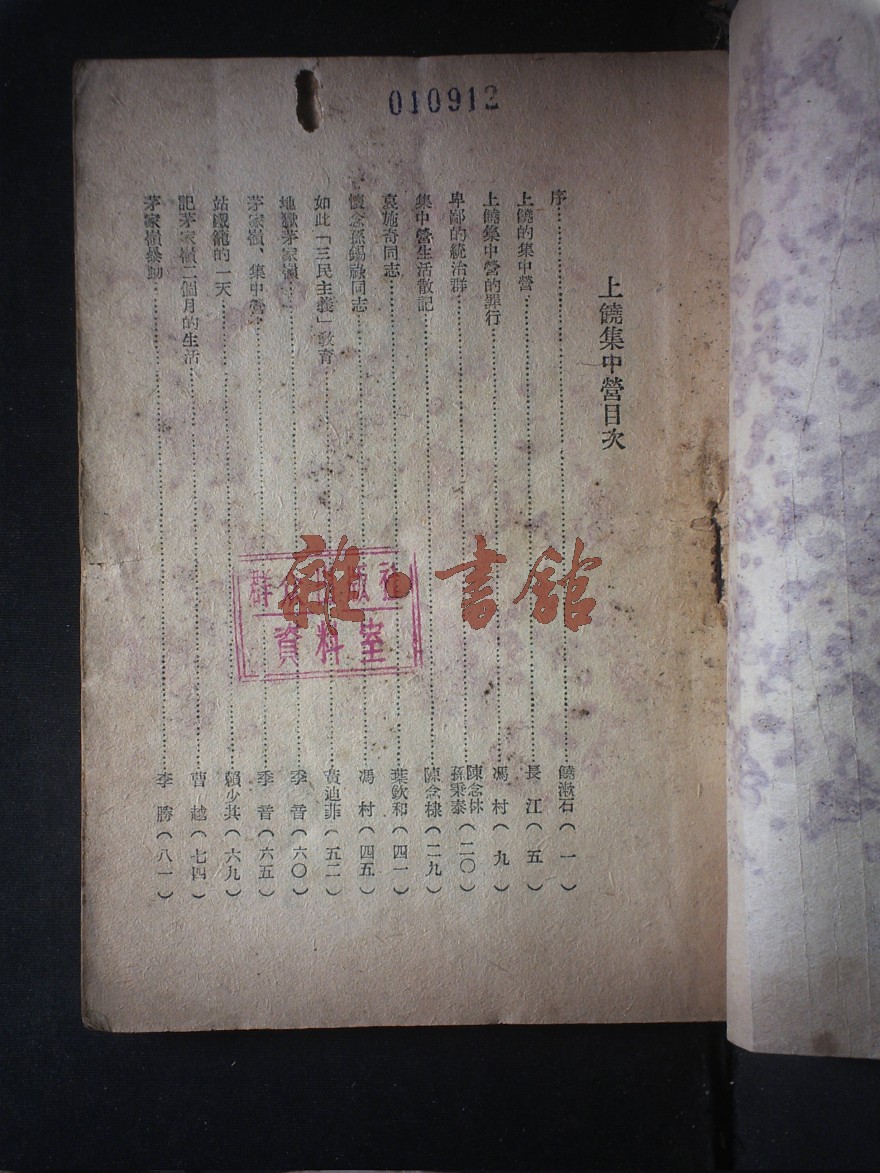 010912
上饒集中營目次
序…………饒漱石(一)
上饒的集中營…………長江(五)
上饒集中營的罪行…………馮村(九)
卑鄙的統治群…………陳念棣 孫秉泰(二〇)
集中營生活散記…………陳念棣(二九)
哀施奇同志…………葉欽和(四一)
懷念孫錫祿同志…………馮村(四五)
如此「三民主義」教育…………黃迪菲(五二)
地獄茅家嶺…………季音(六〇)
茅家嶺、集中營…………季音(六五)
站鐵籠的一天…………賴少其(六九)
記茅家嶺二個月的生活…………曹越(七四)
茅家嶺暴動…………李勝(八一)
群眾出版社
資料室
雜·書館